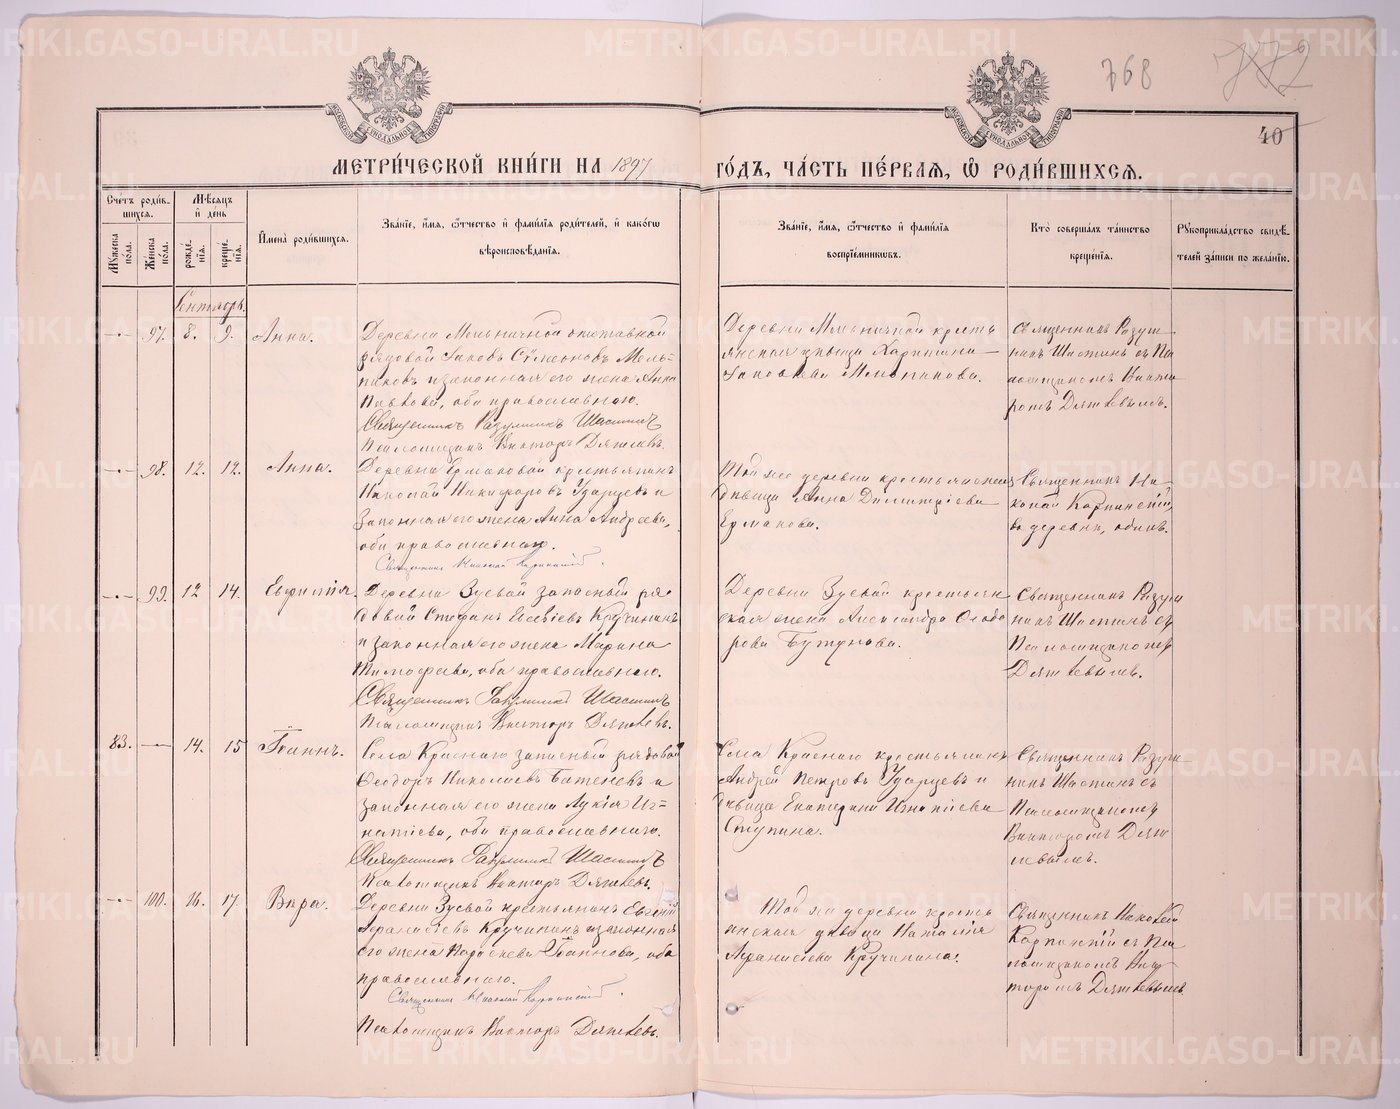 768
772
40
МЕТРИ́ЧЕСКОЙ КНИ́ГИ НА 1897 ГО́ДЪ, ЧА́СТЬ ПЕ́РВАЯ, Ѡ РОДИ́ВШИХСЯ.
Сче́тъ роди́вшихся.
Му́жеска по́ла.
Же́нска по́ла.
Мѣ́сяцъ и де́нь
рожде́нія.
креще́нія.
Имена̀ роди́вшихся.
Зва́ніе, и́мя, ѻ҆́тчество и фами́лія роди́телей, и како́гѡ
вѣроисповѣ́данія.
Зва́ніе, и́мя, ѻ҆́тчество и фами́лія
воспріе́мниковъ.
Кто̀ соверша́лъ та́инство
креще́нія.
Рукоприкла́дство свидѣ́
телей за́писи по жела́нію.
Сентябрь.
97. 8. 9. Анна.
Деревни Мельничной отставной
рядовой Іаковъ Симеоновъ Мель-
никовъ и законная его жена Анна
Павлова, оба православнаго.
Священникъ Разумникъ Шастинъ
Псаломщикъ Викторъ Дягилевъ.
Деревни Мельничной кресть
янская дѣвица Харитина
Іаковлева Мельникова.
Священникъ Разум
никъ Шастинъ съ Пса
ломщикомъ Викто
ромъ Дягилевымъ.
98. 12. 12. Анна.
Деревни Ермаковой крестьянинъ
Николай Никифоровъ Ударцевъ и
законная его жена Анна Андреева,
оба православнаго.
Священникъ Николай Карпинскій.
Той же деревни крестьянская
дѣвица Анна Димитріева
Ермакова.
Священникъ Ни
колай Карпинскій,
въ деревнѣ, единъ.
99. 12 14. Евфимія.
Деревни Зуевой запасный ря
довой Стефанъ Исаіевъ Кручининъ
и законная его жена Марина
Тимофеева, оба православнаго.
Священникъ Разумникъ Шастинъ
Псаломщикъ Викторъ Дягилевъ.
Деревни Зуевой крестьян
ская жена Александра Ѳеодо
рова Бутунова.
Священникъ Разум
никъ Шастинъ съ
Псаломщикомъ
Дягилевымъ.
83. 14. 15 Іоаннъ.
Села Краснаго запасный рядовой
Ѳеодоръ Николаевъ Батеневъ и
законная его жена Лукія Иг-
натіева, оба православнаго.
Священникъ Разумникъ Шастинъ
Псаломщикъ Викторъ Дягилевъ.
Села Краснаго крестьянинъ
Андрей Петровъ Ударцевъ и
дѣвица Екатерина Игнатіева
Ступина.
Священникъ Разум
никъ Шастинъ съ
Псаломщикомъ
Викторомъ Дяги
левымъ.
100. 16. 17. Вѣра.
Деревни Зуевой крестьянинъ Евгеній
Аѳанасіевъ Кручининъ и законная
его жена Параскева Іоаннова, оба
православнаго.
Священникъ Николай Карпинскій.
Псаломщикъ Викторъ Дягилевъ.
Той же деревни кресть
янская дѣвица Наталія
Аѳанасіева Кручинина.
Священникъ Николай
Карпинскій съ Пса
ломщикомъ Вик
торомъ Дягилевымъ.
METRIKI.GASO-URAL.RU